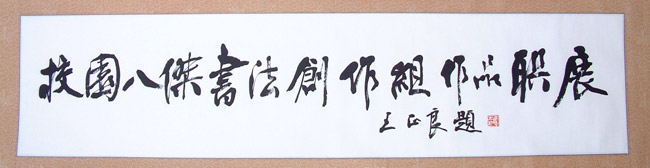 校園八傑書法創作組作品联展
王正良題